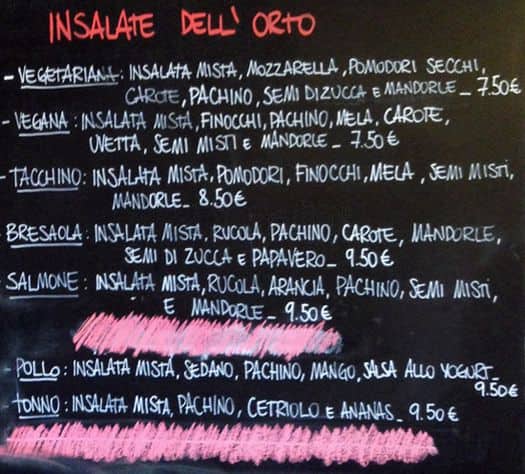 INSALATE DELL' ORTO
- VEGETARIANA: INSALATA MISTA, MOZZARELLA, POMODORI SECCHI,
CAROTE, PACHINO, SEMI DI ZUCCA E MANDORLE_ 7.50€
- VEGANA: INSALATA MISTA, FINOCCHI, PACHINO, MELA, CAROTE,
UVETTA, SEMI MISTI E MANDORLE_ 7.50€
- TACCHINO: INSALATA MISTA, POMODORI, FINOCCHI, MELA, SEMI MISTI,
MANDORLE_ 8.50€
BRESAOLA: INSALATA MISTA, RUCOLA, PACHINO, CAROTE, MANDORLE,
SEMI DI ZUCCA E PAPAVERO_ 9.50€
SALMONE: INSALATA MISTA, RUCOLA, ARANCIA, PACHINO, SEMI MISTI,
E MANDORLE_ 9.50€
- POLLO: INSALATA MISTA, SEDANO, PACHINO, MANGO, SALSA ALLO YOGURT_
9.50€
- TONNO: INSALATA MISTA, PACHINO, CETRIOLO E ANANAS_ 9.50€